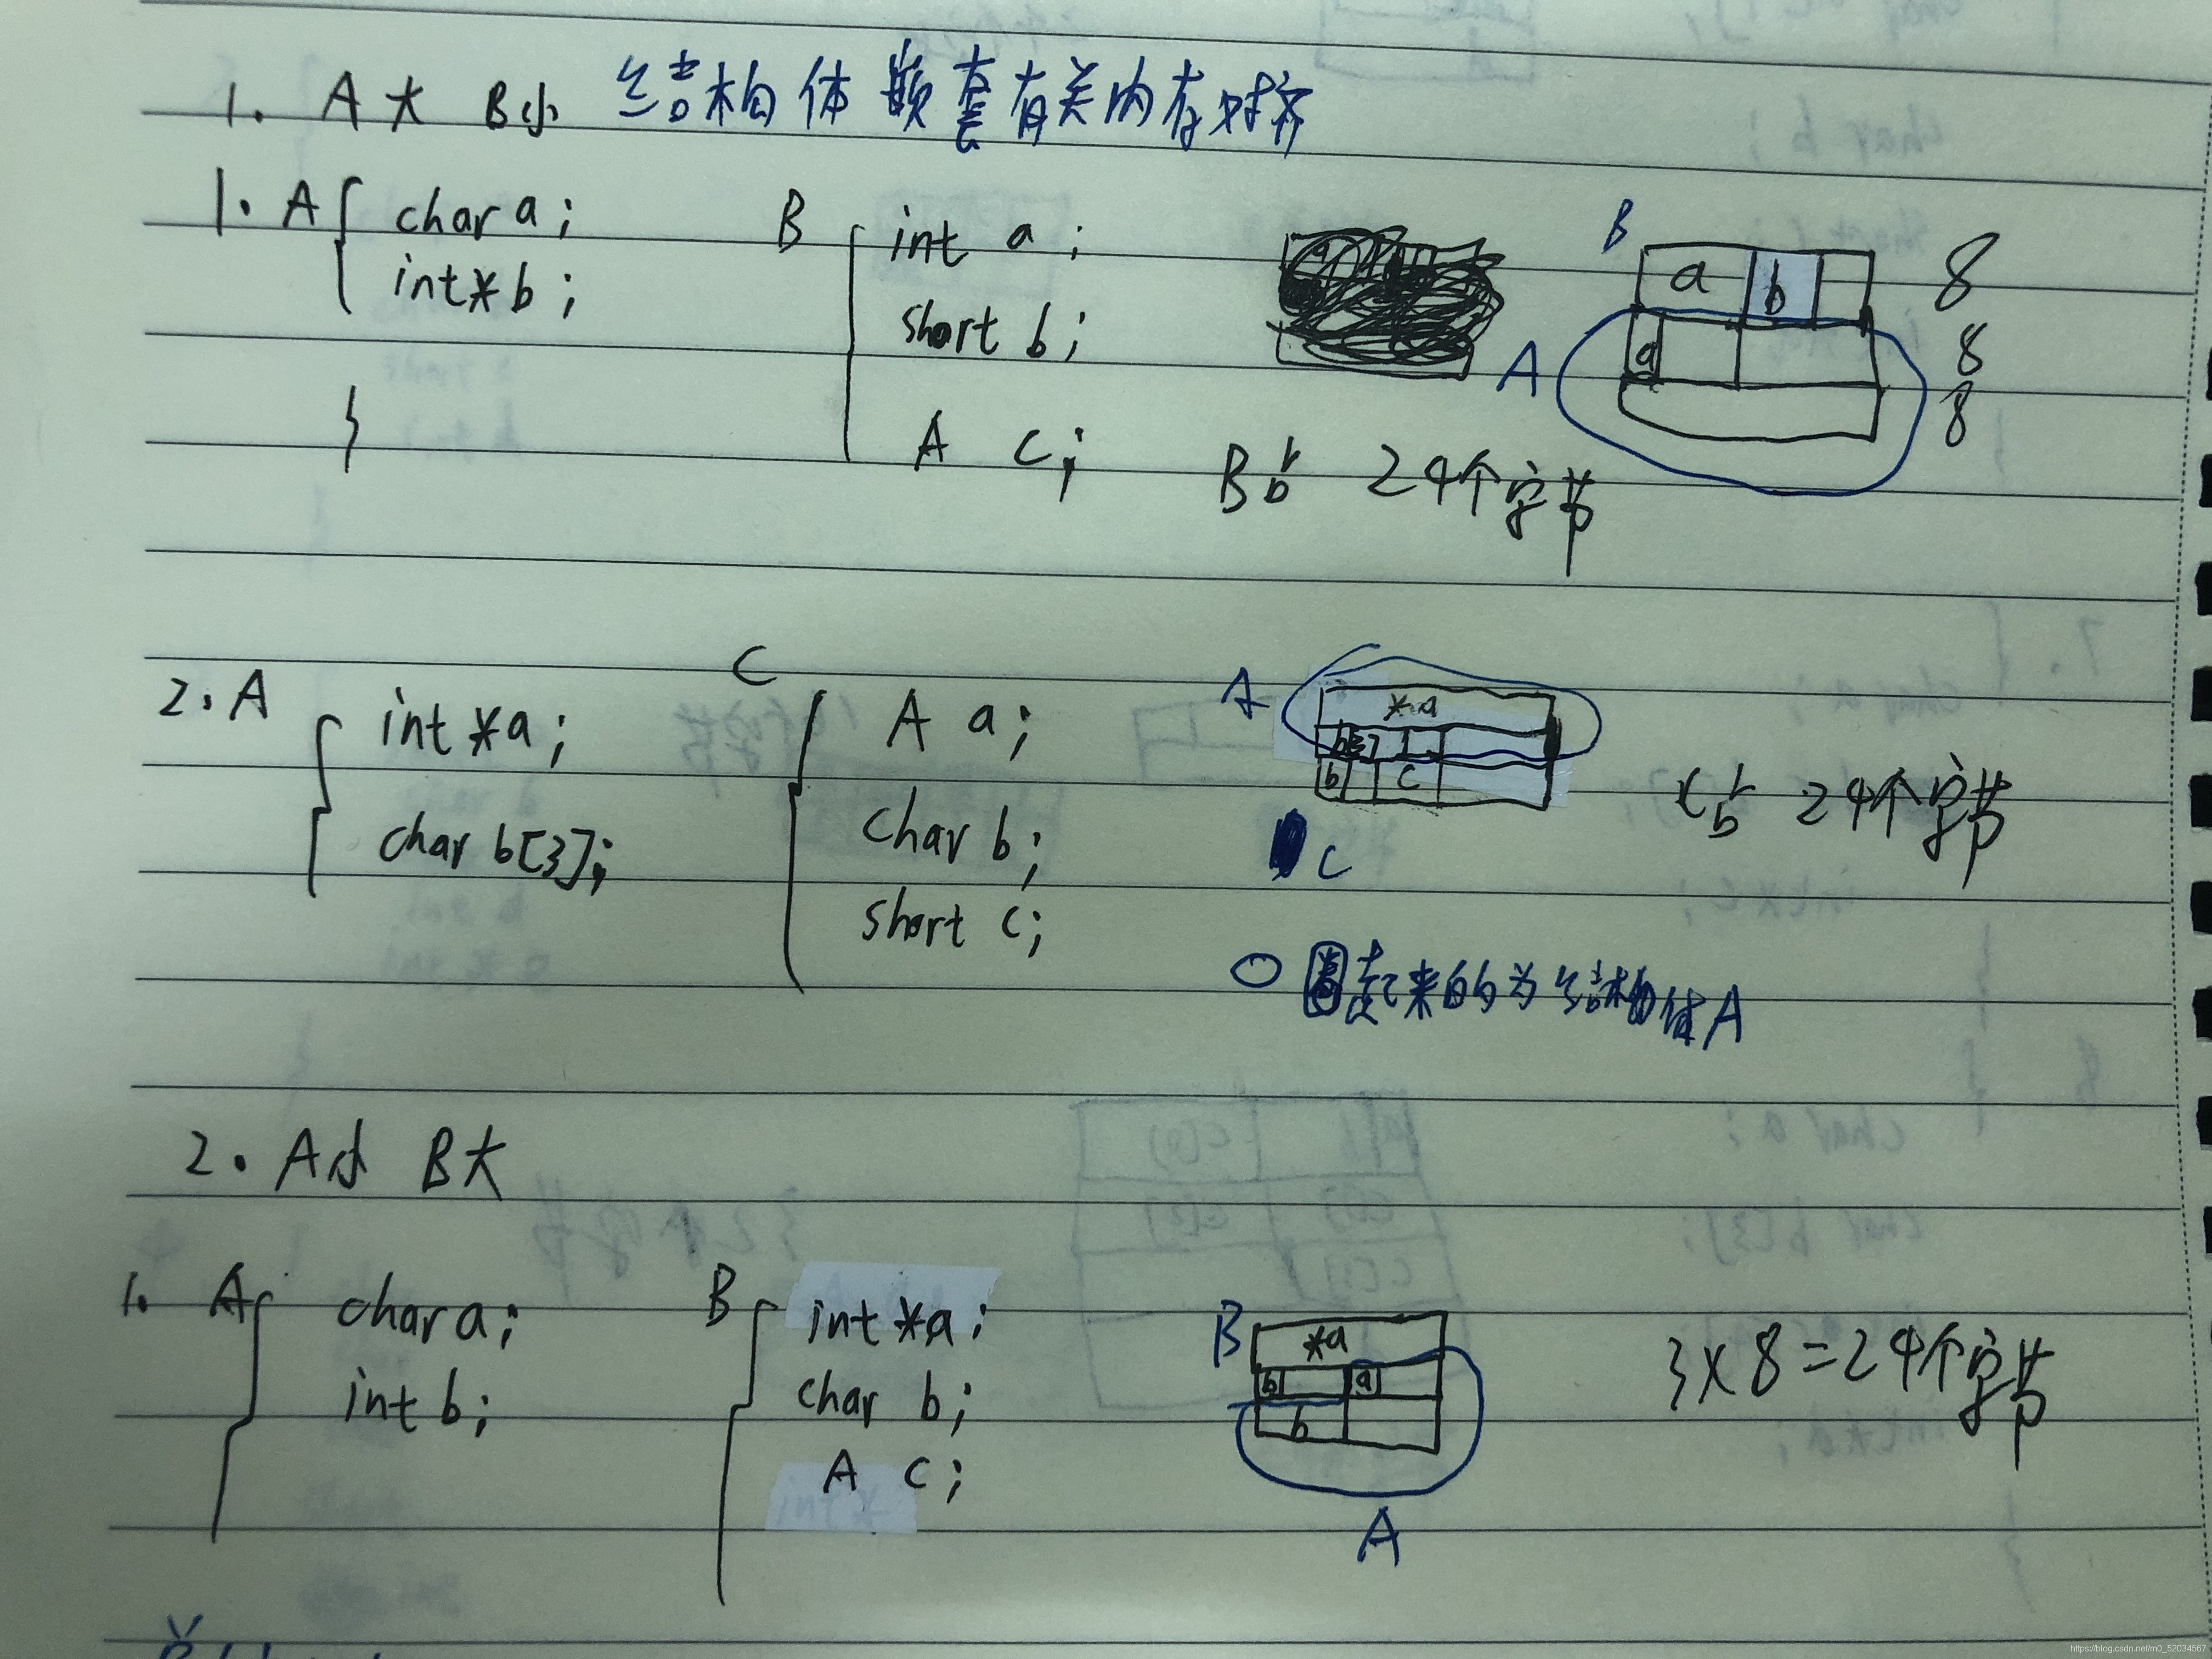 1. A大 B小 结构体嵌套有关内存对齐
1. A{ char a;
int*b;
}
B{ int a;
short b;
A c;
B占 24个字节
B
a b 8
A a 8
8
2. A{ int *a;
char b[3];
C{ A a;
char b;
short c;
A *a
b[3]
b c
C
C占 24个字节
圈起来的为结构体A
2. A小 B大
1. A{ char a;
int b;
B{ int *a;
char b;
A c;
B *a
b a
b
A
3×8=24个字节
https://blog.csdn.net/m0_52034567